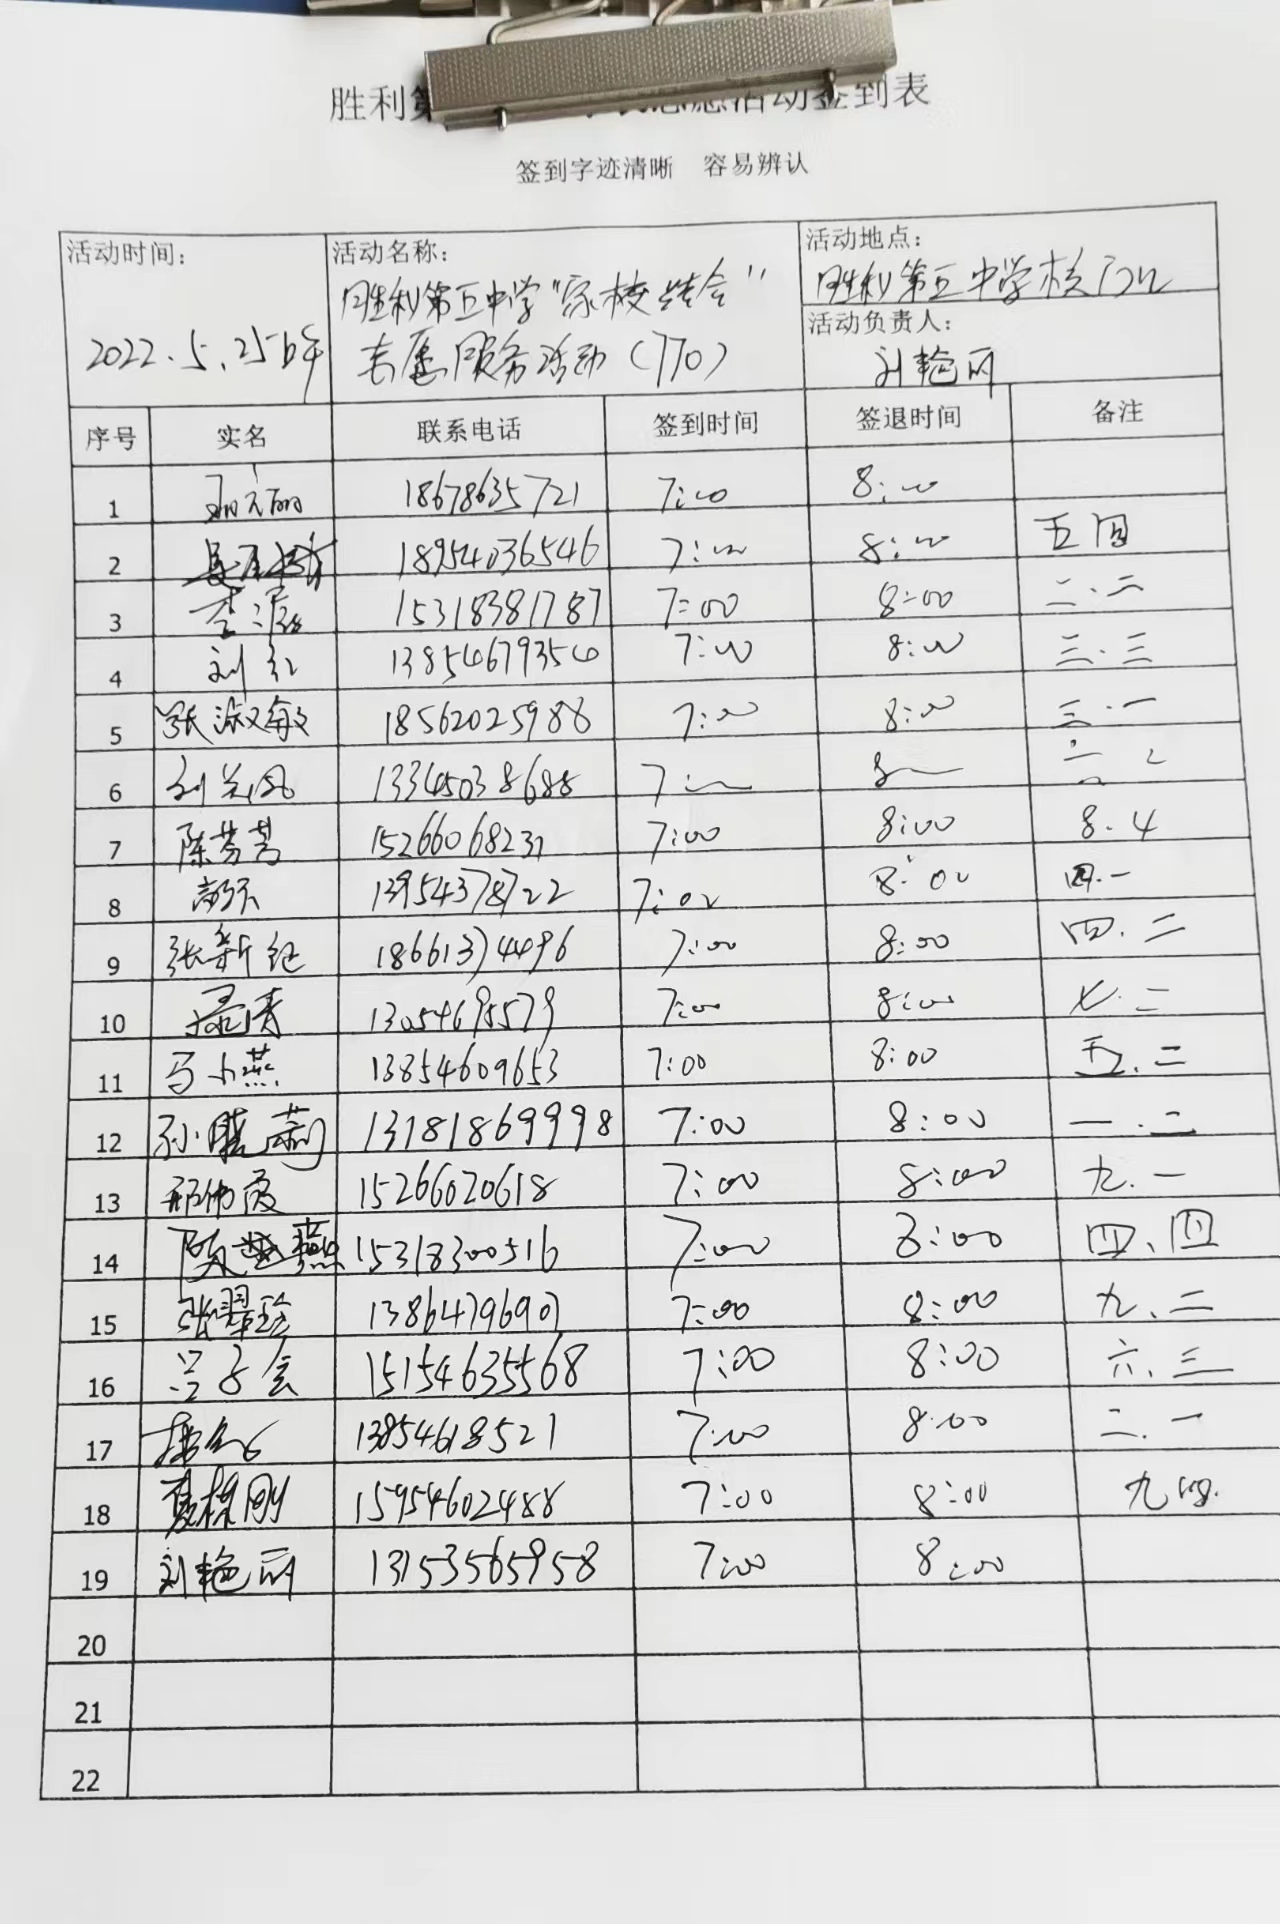 胜利第 活动签到表
签到字迹清晰 容易辨认
活动时间： 活动名称： 活动地点：
胜利第五中学"家校结合" 胜利第五中学校门口
活动负责人：
2022.5.25 志愿服务活动（770） 刘艳丽
序号 实名 联系电话 签到时间 签退时间 备注
1 18678635721 7:00 8:00
2 18954036546 7:00 8:00 五四
3 李 15318381787 7:00 8:00 二.二
4 刘红 13854679354 7:00 8:00 三.三
5 张淑敏 18562025988 7:00 8:00 三.一
6 刘兰凤 13345038688 7:00 8:00
7 陈芳芳 15266068231 7:00 8:00 8.4
8 13954378722 7:00 8:00 四.一
9 张新红 18661374496 7:00 8:00 四.二
10 孟倩 13054695579 7:00 8:00 七.二
11 马小燕 13854609653 7:00 8:00 五.二
12 孙晓莉 13181869998 7:00 8:00 一.二
13 邢伟霞 15266020618 7:00 8:00 九.一
14 陈 燕 15318300516 7:00 8:00 四、四
15 张翠玲 13864796907 7:00 8:00 九、二
16 吕子会 15154635568 7:00 8:00 六、三
17 13854618521 7:00 8:00 二.一
18 夏栋刚 15954602488 7:00 8:00 九四.
19 刘艳丽 13153565958 7:00 8:00
20
21
22